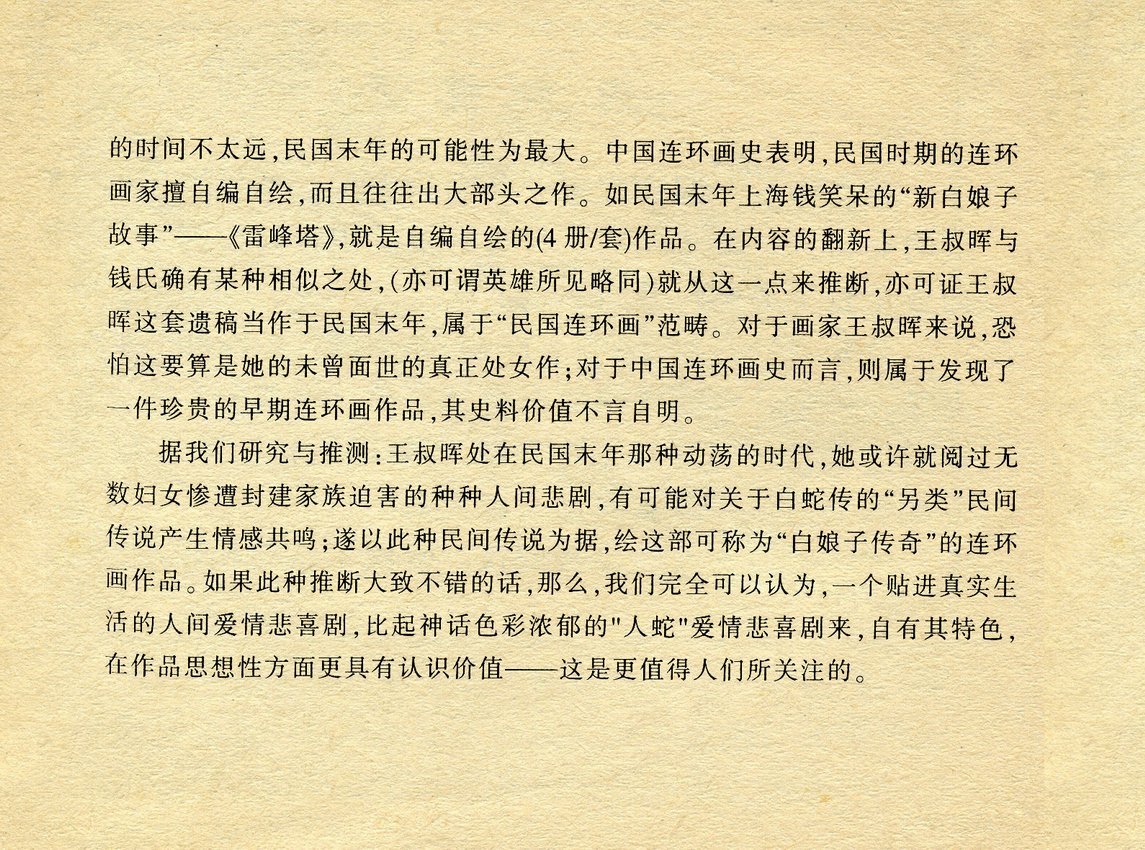 的时间不太远,民国末年的可能性为最大。中国连环画史表明,民国时期的连环
画家擅自编自绘,而且往往出大部头之作。如民国末年上海钱笑呆的“新白娘子
故事”——《雷峰塔》,就是自编自绘的(4 册/套)作品。在内容的翻新上,王叔晖与
钱氏确有某种相似之处,(亦可谓英雄所见略同)就从这一点来推断,亦可证王叔
晖这套遗稿当作于民国末年,属于“民国连环画”范畴。对于画家王叔晖来说,恐
怕这要算是她的未曾面世的真正处女作;对于中国连环画史而言,则属于发现了
一件珍贵的早期连环画作品,其史料价值不言自明。
据我们研究与推测:王叔晖处在民国末年那种动荡的时代,她或许就阅过无
数妇女惨遭封建家族迫害的种种人间悲剧,有可能对关于白蛇传的“另类”民间
传说产生情感共鸣;遂以此种民间传说为据,绘这部可称为“白娘子传奇”的连环
画作品。如果此种推断大致不错的话,那么,我们完全可以认为,一个贴进真实生
活的人间爱情悲喜剧,比起神话色彩浓郁的"人蛇"爱情悲喜剧来,自有其特色,
在作品思想性方面更具有认识价值——这是更值得人们所关注的。